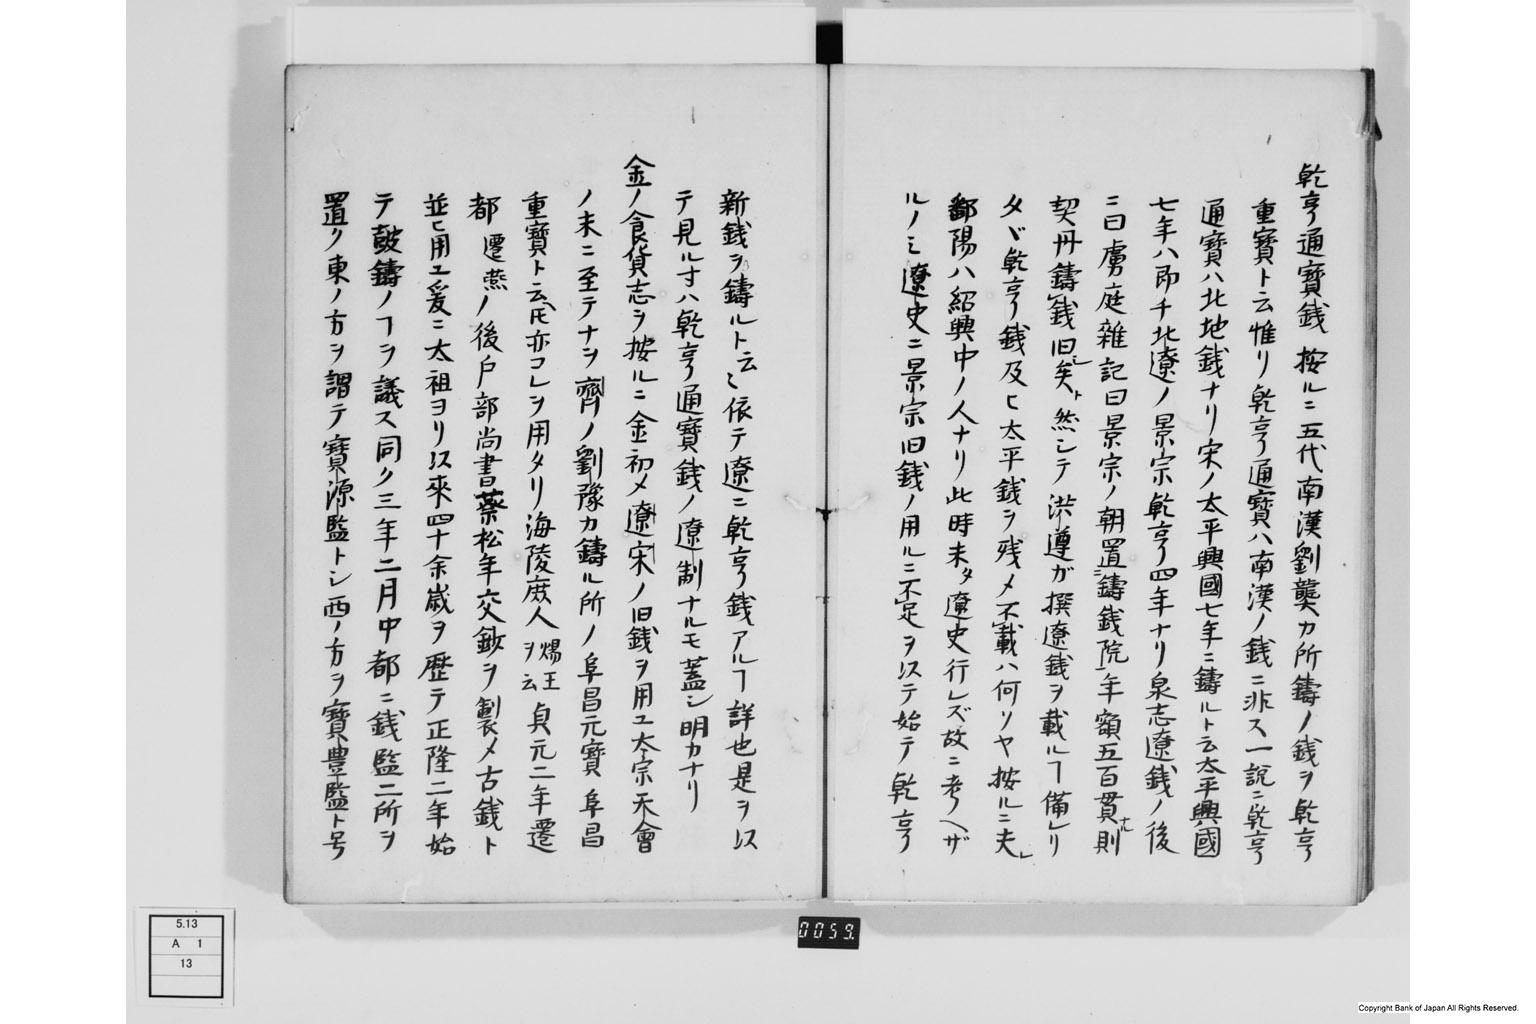 乾亨通寳銭 按ルニ五代南漢劉龑カ所鑄ノ銭ヲ乾亨
重寳ト云惟リ乾亨通寳ハ南漢ノ銭ニ非ス一說ニ乾亨
通寳ハ北地銭ナリ宋ノ太平興國七年ニ鑄ルト云太平興國
七年ハ即チ北遼ノ景宗乾亨四年ナリ泉志遼銭ノ後
ニ曰虜庭雜記曰景宗ノ朝置鑄銭院年額五百貫則
契丹鑄銭旧矣ト然シテ洪遵ガ撰遼銭ヲ載ルヿ備レリ
タヾ乾亨銭及ヒ太平銭ヲ残メ不載ハ何ソヤ按ルニ夫レ
鄱陽ハ紹興中ノ人ナリ此時未タ遼史行レズ故ニ考ヘザ
ルノミ遼史ニ景宗旧銭ノ用ルニ不足ヲ以テ始テ乾亨
新銭ヲ鑄ルト云ミ依テ遼ニ乾亨銭アルヿ詳也是ヲ以
テ見ル寸ハ乾亨通寳銭ノ遼制ナルモ蓋シ明カナリ
金ノ食貨志ヲ按ルニ金初メ遼宋ノ旧銭ヲ用ユ太宗天會
ノ末ニ至テナヲ齊ノ劉豫カ鑄ル所ノ阜昌元寳阜昌
重寳ト云氏亦コレヲ用タリ海陵庶人煬王ヲ云貞元二年遷
都遷燕ノ後戸部尚書蔡松年交鈔ヲ製メ古銭ト
並ヒ用ユ爰ニ太祖ヨリ以來四十余歳ヲ歴テ正隆二年始
テ皷鑄ノヿヲ議ス同ク三年二月中都ニ銭監二所ヲ
置ク東ノ方ヲ謂テ寳源監トシ西ノ方ヲ寳豊監ト号
0059.
5.13
A 1
13
Copyright Bank of Japan All Rights Reserved.